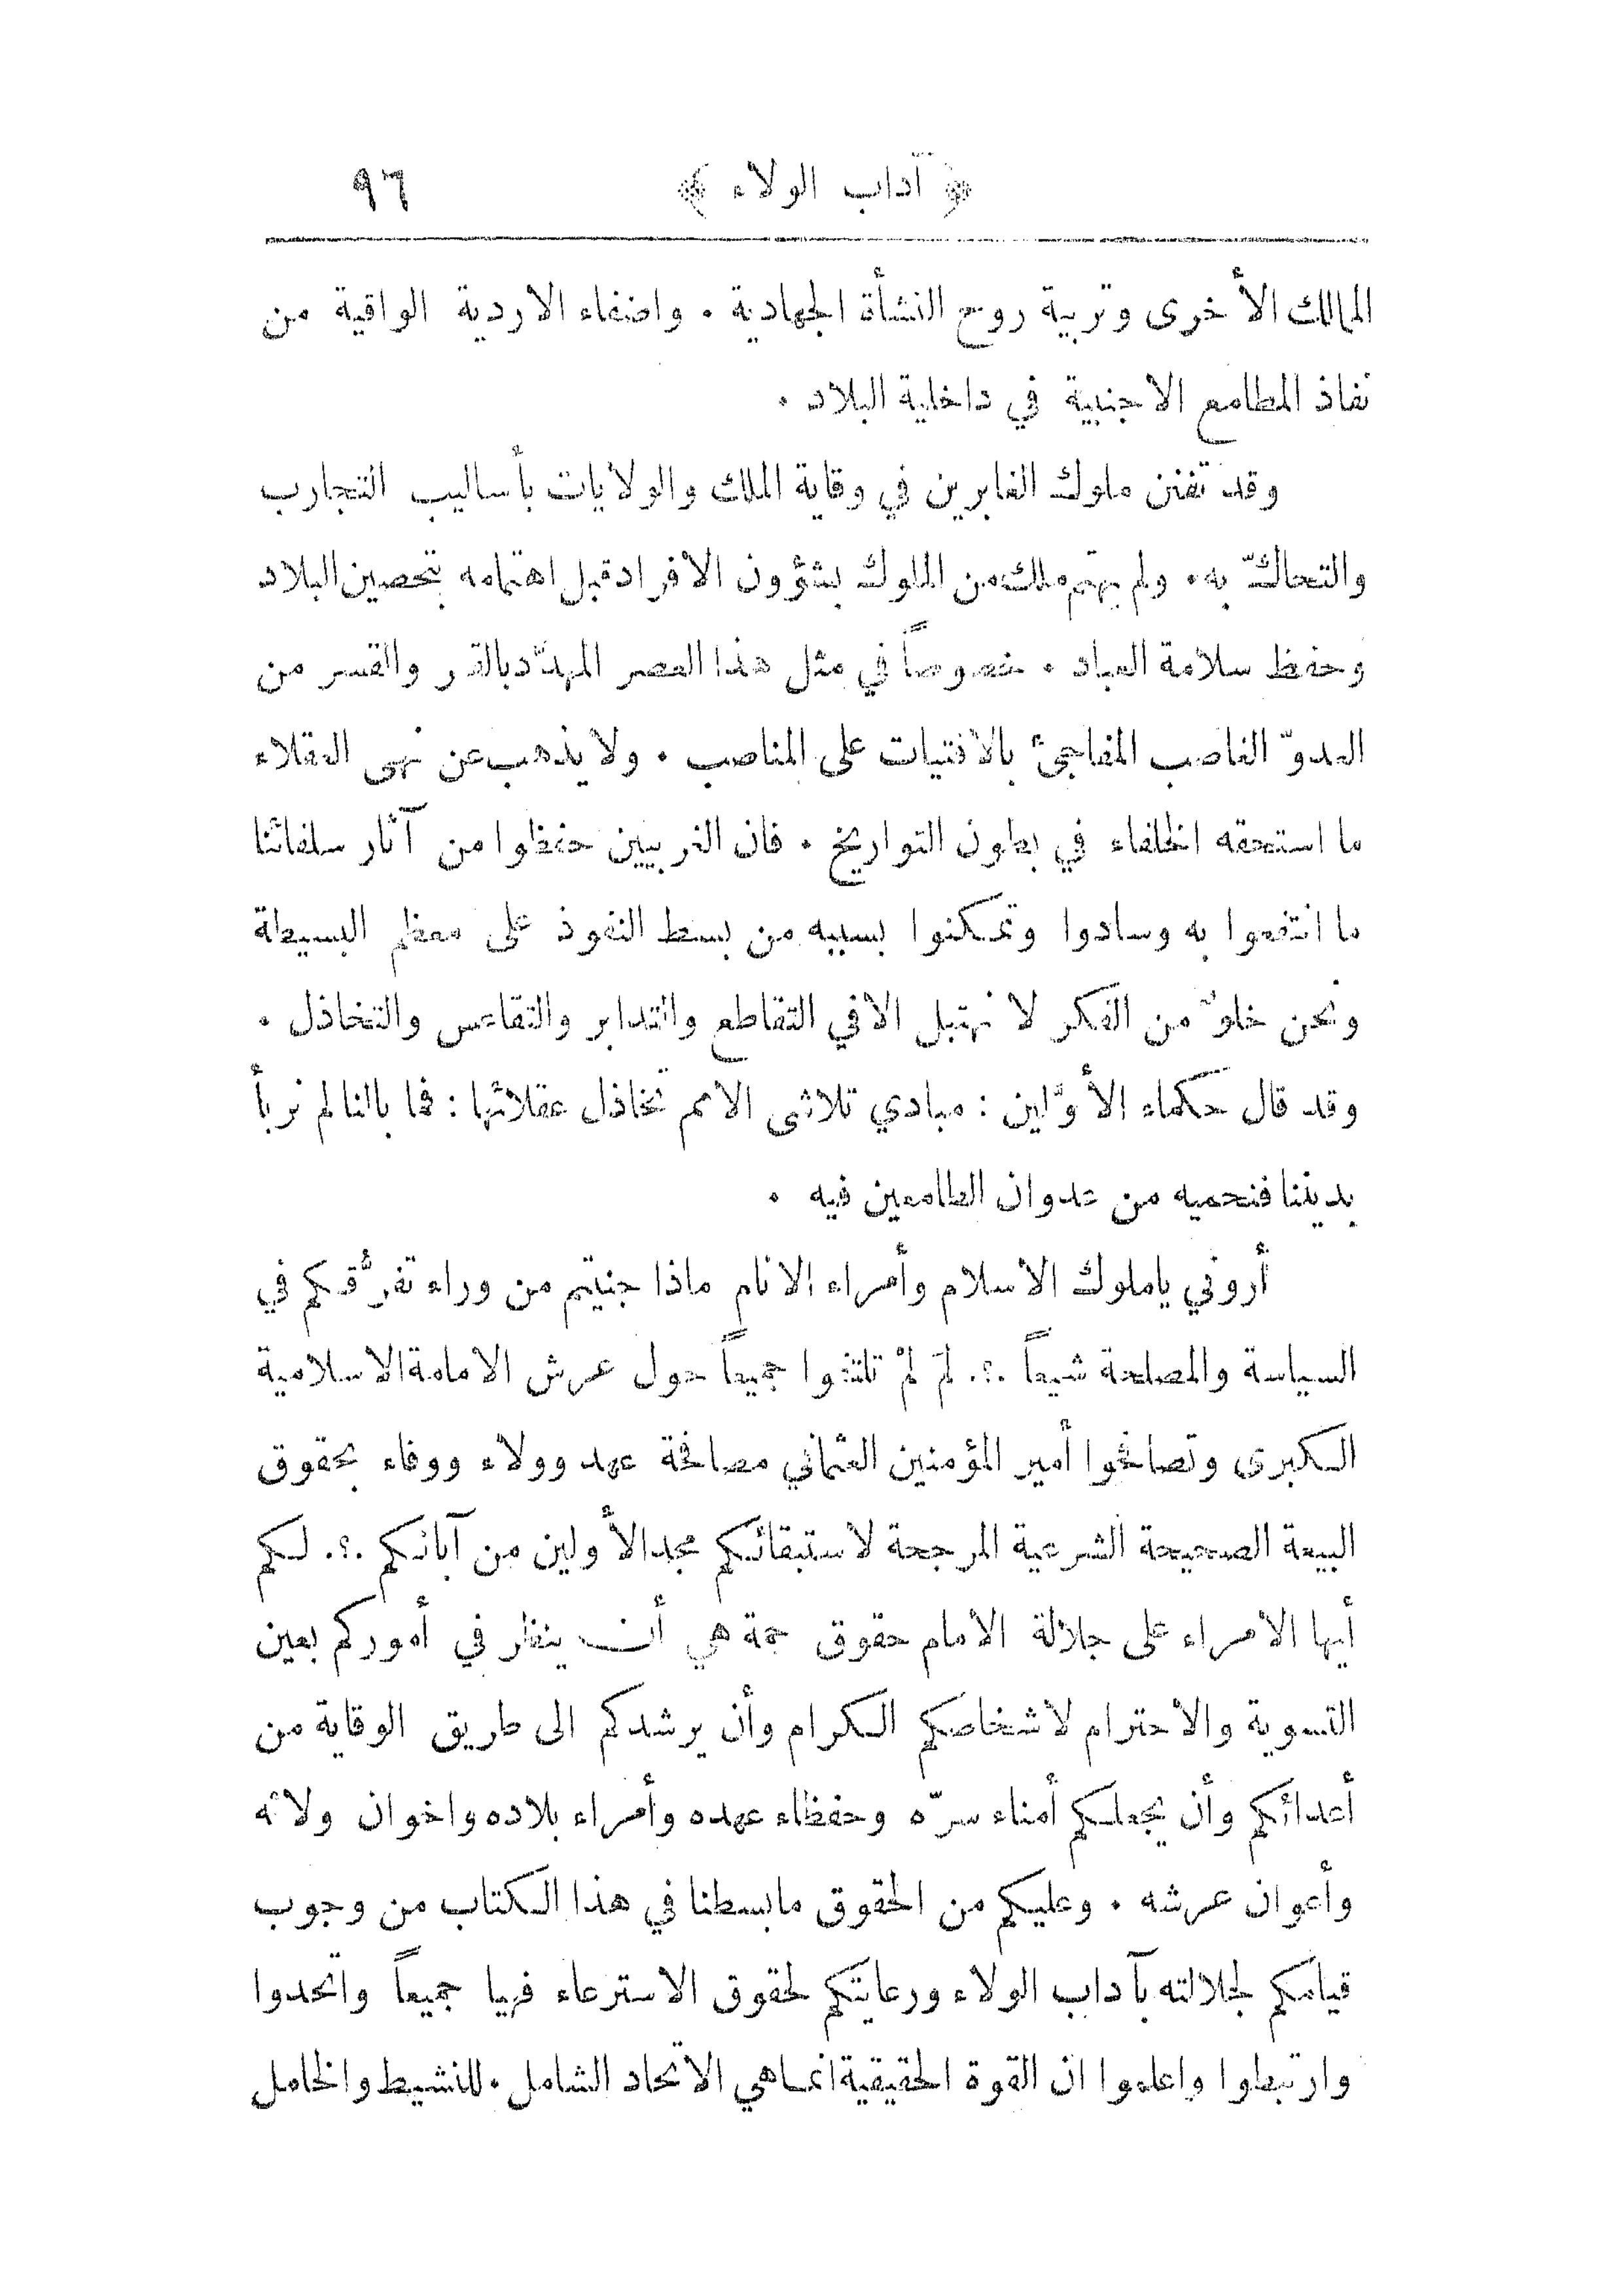 ﴿ آداب الولاء ﴾ ٩٦
الممالك الأخرى وتربية روح النشأة الجهادية . واضفاء الاردية الواقية من
نفاذ المطامع الاجنبية في داخلية البلاد .
وقد تفنن ملوك الغابرين في وقاية الملك والولايات بأساليب التجارب
والتحاكّ به . ولم يهتم ملك من الملوك بشؤون الافراد قبل اهتمامه بتحصين البلاد
وحفظ سلامة العباد . خصوصاً في مثل هذا العصر المهدّد بالغدر والقسر من
العدوّ الغاصب المفاجئ بالافتيات على المناصب . ولا يذهب عن نهى العقلاء
ما استحقه الخلفاء في بطون التواريخ . فان الغربيين حفظوا من آثار سلفائنا
ما انتفعوا به وسادوا وتمكنوا بسببه من بسط النفوذ على معظم البسيطة
ونحن خلوّ من الفكر لا نهتبل الا في التقاطع والتدابر والتقاعس والتخاذل .
وقد قال حكماء الأوّلين : مبادي تلاشى الامم تخاذل عقلائها : فما بالنا لم نربأ
بديننا فنحميه من عدوان الطامعين فيه .
أروني ياملوك الاسلام وأمراء الانام ماذا جنيتم من وراء تفرُّقكم في
السياسة والمصلحة شيعاً .؟. لمَ لمْ تلتفوا جميعاً حول عرش الامامة الاسلامية
الكبرى وتصافحوا أمير المؤمنين العثماني مصافحة عهد وولاء ووفاء بحقوق
البيعة الصحيحة الشرعية المرجحة لاستبقائكم مجد الأولين من آبائكم .؟. لكم
أيها الامراء على جلالة الامام حقوق جمة هي أن ينظر في أموركم بعين
التسوية والاحترام لاشخاصكم الكرام وأن يرشدكم الى طريق الوقاية من
أعدائكم وأن يجعلكم أمناء سرّه وحفظاء عهده وأمراء بلاده واخوان ولائه
وأعوان عرشه . وعليكم من الحقوق مابسطنا في هذا الكتاب من وجوب
قيامكم لجلالته بآداب الولاء ورعايتكم لحقوق الاسترعاء فهيا جميعاً واتحدوا
وارتبطوا واعلموا ان القوة الحقيقية انما هي الاتحاد الشامل . للنشيط والخامل